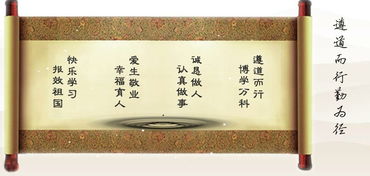 遵道而行勤为径
遵道而行
博学分科
诚恳做人
认真做事
爱生敬业
幸福育人
快乐学习
报效祖国